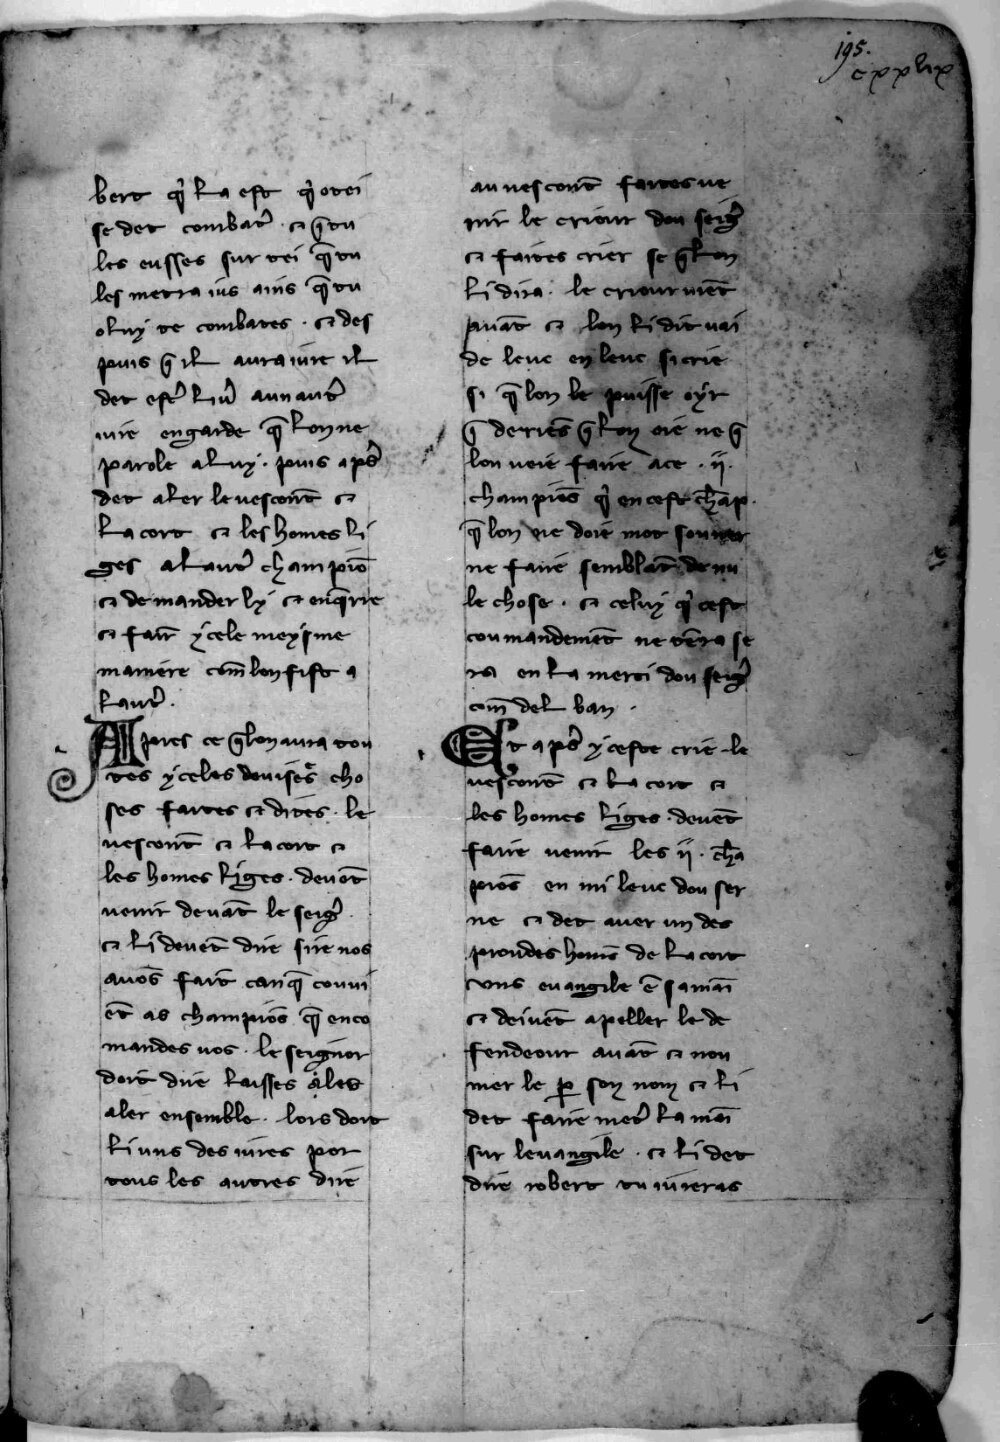 195.
cxxlix
bert q̉ la est q̉ o tei
se det combat̉ ⁊ q̄ tu
les eusses sur tei q̄ tu
les metra ius ains q̄ tu
o luy te combates . ⁊ des
puis q̄ il aura iure il
det est̉ liu̓ au aut̉
iure en garde q̄ lon ne
parole a luy . puis ap̓s
det aler le vescont̄ ⁊
la cort ⁊ les homes li
ges a laut̉ champiō
⁊ demander ly ⁊ enq̄rre
⁊ fair̄ ycele meysme
maniere com̄ lon fist a
laut̉ .
Apres ce q̄ lon aura tou
tes yceles deuisees cho
ses faites ⁊ dites . le
vescont̄ ⁊ la cort ⁊
les homes liges . deuēt
venir deuāt le seig̉ .
⁊ li deuēt dire sire nos
auōs fait can q̄ coui
ēt as champiōs q̄ en co
mandes vos . le seignor
doit dire laisses a les
aler ensemble . lors doit
li uns des iures por
tous les autres dire
au vescont̄ faites ve
nir le criour dou seig̉
⁊ faites crier se q̄ lon
li dira . le criour viēt
auāt ⁊ lon li dit vai
de leuc en leuc si crie
si q̄ lon le puisse oyr
q̄ de riēs q̄ lon oie ne q̄
lon veie faire a ce . ii .
champiōs q̉ en cest chāp .
q̄ lon ne doie mot souner
ne faire semblāt de nu
le chose . ⁊ celuy q̉ cest
coumandemēt ne tēra se
ra en la merci dou seig̉
com̄ del ban .
Et ap̓s yceste crie . le
vescont̄ ⁊ la cort ⁊
les homes liges . deuēt
faire venir les ii . chā
piōs en mi leuc dou ser
ne ⁊ det auer un des
proudes homēs de la cort
uns euangile ē sa māi
⁊ deiuēt apeller le de
fendeour auāt ⁊ nou
mer le p̱ son nom ⁊ li
det faire met̉ la māi
sur leuangile . ⁊ li det
dire robert tu iureras